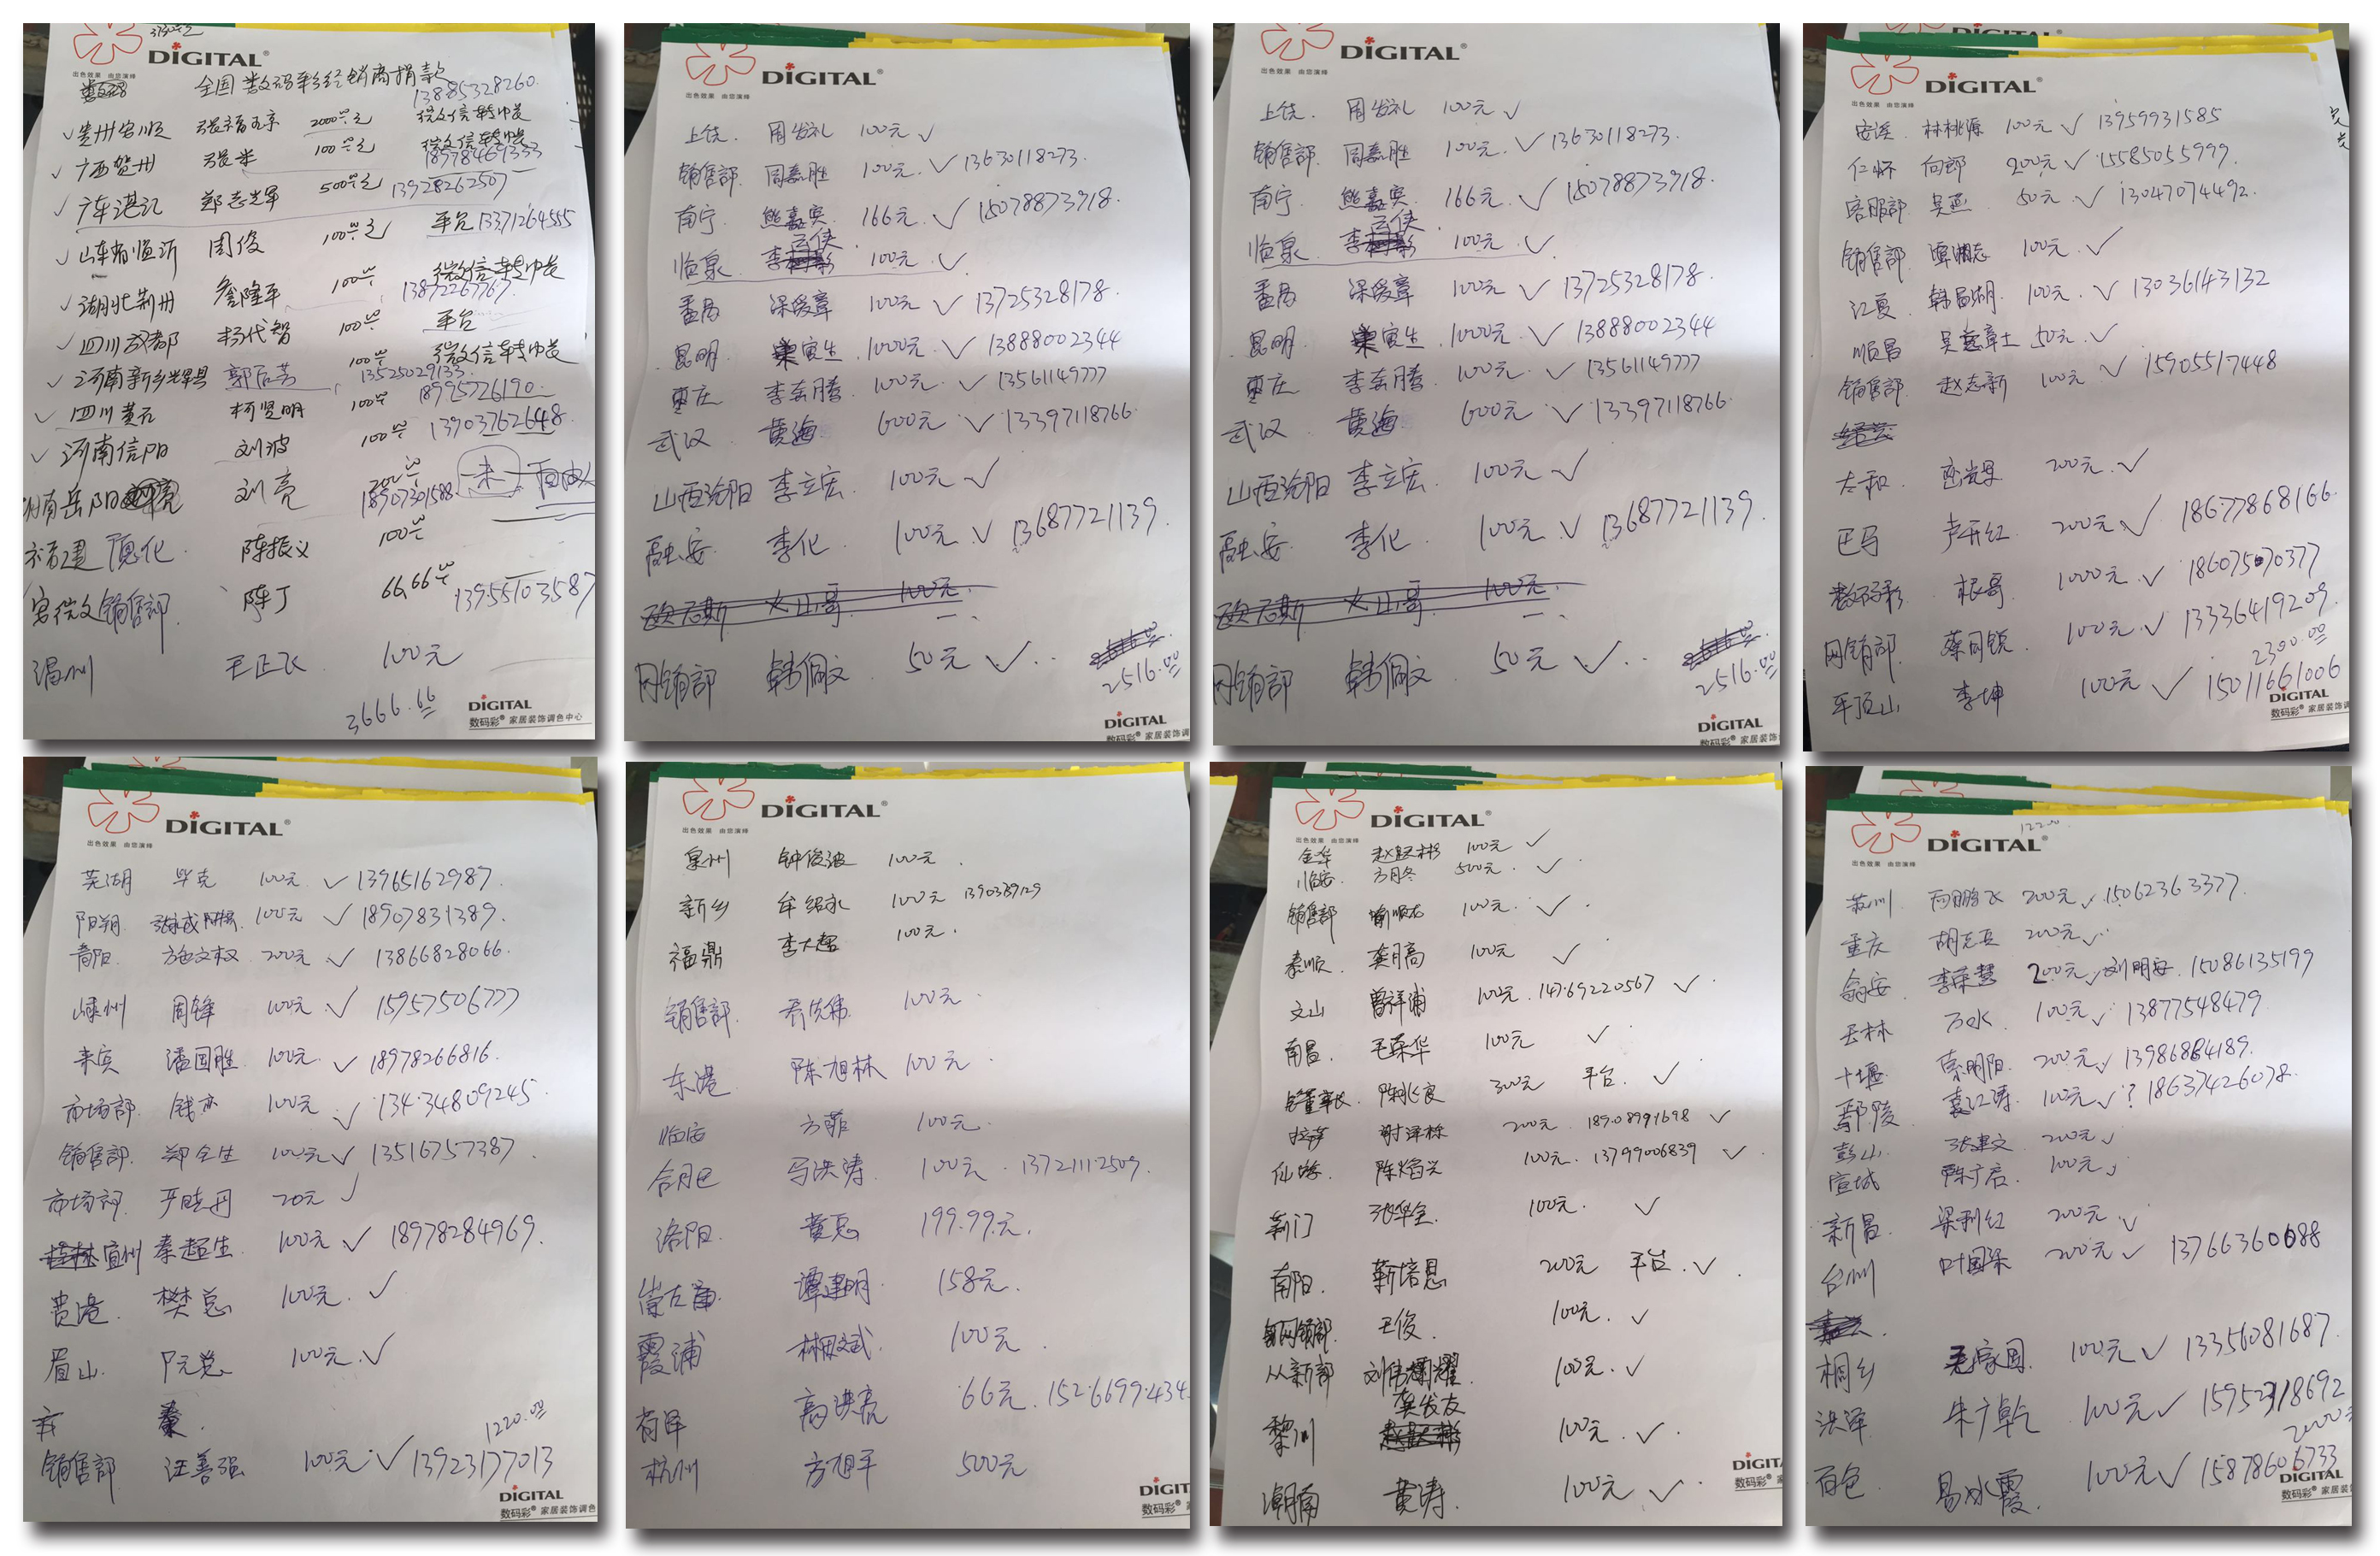 DIGITAL
出色效果 由您演绎
全国数码彩经销商捐款
13885328260
贵州安顺 2000元 微信转帐
广西贺州 张米 100元 微信转帐
18978469333
广东湛江 郑志军 500元 13928262507
山东省临沂 周俊 100元 平台 13371264555
湖北荆州 詹隆平 100 微信转帐
13872267767
四川成都 杨代智 100 平台
河南新乡辉县 100 微信转帐
13525029133
四川黄石 柯贤明 100 18995726190
河南信阳 刘波 100 13903762648
湖南岳阳 刘亮 200
18907301588
福建德化 陈振义 100
销售部 陈丁 66.66 13955103587
温州 王正飞 100元
3666.66
DIGITAL
数码彩 家居装饰调色中心
DIGITAL
出色效果 由您演绎
上饶 周发礼 100元
销售部 周嘉胜 100元 13630118273
南宁 熊嘉宾 166元 15078873918
临泉 李云侠 100元
番禺 梁爱章 100元 13725328178
昆明 寅生 1000元 13888002344
枣庄 李奔腾 100元 13561149777
武汉 黄海 600元 13397118766
山西汾阳 李立宏 100元
融安 李化 100元 13687721139
火山哥 100元
网销部 韩佩文 50元
2516.00
DIGITAL
数码彩 家居装饰调
DIGITAL
出色效果 由您演绎
上饶 周发礼 100元
销售部 周嘉胜 100元 13630118273
南宁 熊嘉宾 166元 15078873918
临泉 李云侠 100元
番禺 梁爱章 100元 13725328178
昆明 寅生 1000元 13888002344
枣庄 李奔腾 100元 13561149777
武汉 黄海 600元 13397118766
山西汾阳 李立宏 100元
融安 李化 100元 13687721139
火山哥 100元
网销部 韩佩文 50元
2516.00
DIGITAL
数码彩 家居装饰
DIGITAL
出色效果 由您演绎
安溪 林桃源 100元 13959931585
仁怀 向郎 200元 15585055999
客服部 吴燕 50元 13047074492
销售部 谭湘志 100元
江夏 韩昌湖 100元 13036143132
顺昌 50元
销售部 赵志新 100元 15905517448
太和 200元
巴马 卢开红 200元 18677868166
数码彩 根哥 1000元 18607570377
网销部 蔡同锐 100元 13336419209
2300.00
平顶山 李坤 100元 15011661006
DIGITAL
数码彩 家居装饰调
DIGITAL
出色效果 由您演绎
芜湖 毕克 100元 13965162987
阳朔 100元 18907831389
方文权 200元 13866828066
嵊州 周锋 100元 15957506777
来宾 潘国胜 100元 18978266816
市场部 钱亦 100元 13434809245
销售部 郑全生 100元 13516757387
市场部 严晓丹 20元
宜州 秦超生 100元 18978284969
贵港 樊总 100元
眉山 阮总 100元
1220.00
销售部 汪善强 100元 13923177013
DIGITAL
数码彩 家居装饰调色
DIGITAL
出色效果 由您演绎
泉州 钟俊波 100元
新乡 牟绍永 100元
福鼎 李大超 100元
销售部 乔先伟 100元
东港 陈旭林 100元
临安 方菲 100元
合肥 马洪涛 100元 13721112509
洛阳 黄总 199.99元
崇左 谭建明 158元
霞浦 100元
高洪亮 66元 1526699434
杭州 方旭平 500元
DIGIT
数码彩
DIGITAL
出色效果 由您演绎
金华 赵跃彬 100元
临安 方月冬 500元
销售部 喻顺志 100元
泰顺 龚月高 100元
文山 曾祥浦 100元 14769220567
南昌 毛荣华 100元
300元 平台
拉萨 谢泽栋 200元 18908991698
仙游 陈焰兴 100元 13799006839
荆门 张华全 100元
南阳 靳培恩 200元 平台
网销部 王俊 100元
100元
黎川 龚发友 100元
潮南 黄涛 100元
DIGITA
数码彩
DIGITAL
出色效果 由您演绎
苏州 200元 15062363377
重庆 200元
李荣慧 200元 刘明安 15086135199
玉林 万水 100元 13877548479
十堰 200元 13986884189
鄢陵 袁江涛 100元 ? 18637426078
彭山 张建文 200元
宣城 陈广启 100元
新昌 梁利红 200元
台州 叶国荣 200元 13766360688
桐乡 毛家国 100元 13356081687
洪泽 朱广乾 100元
百色 易冰霞 100元 15878606733
DIGITAL
数码彩 家居装饰